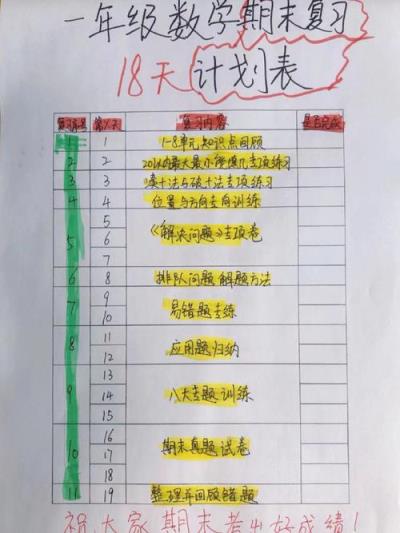 一年级数学期末复习
18天计划表
复习编号 第几天 复习内容 是否完成
1 1 1-8单元知识点回顾
2 2 20以内最大最小能填几专项练习
3 3 凑十法与破十法专项练习
4 4 位置与方向专向训练
5 5 6 7 《解决问题》专项卷
6 8 排队问题解题方法
7 9 10 易错题专练
8 11 12 应用题归纳
9 13 14 15 八大专题训练
10 16 17 18 期末真题试卷
11 19 整理并回顾错题
祝大家期末考出好成绩!